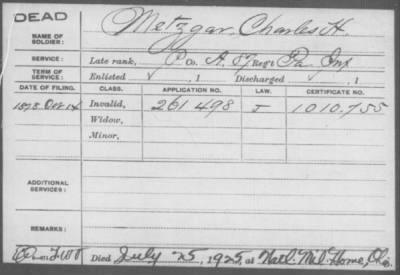 DEAD
NAME OF SOLDIER: Metzgar, Charles H.
SERVICE: Late rank, P Co. A, 57 Reg't Pa Inf
TERM OF SERVICE: Enlisted , 1 Discharged , 1
DATE OF FILING. CLASS. APPLICATION NO. LAW. CERTIFICATE NO.
1878 Oct 14 Invalid, 261 498 J 1010.755
Widow,
Minor,
ADDITIONAL SERVICES:
REMARKS:
Died July 25, 1925, at Natl. Mil. Home, O.